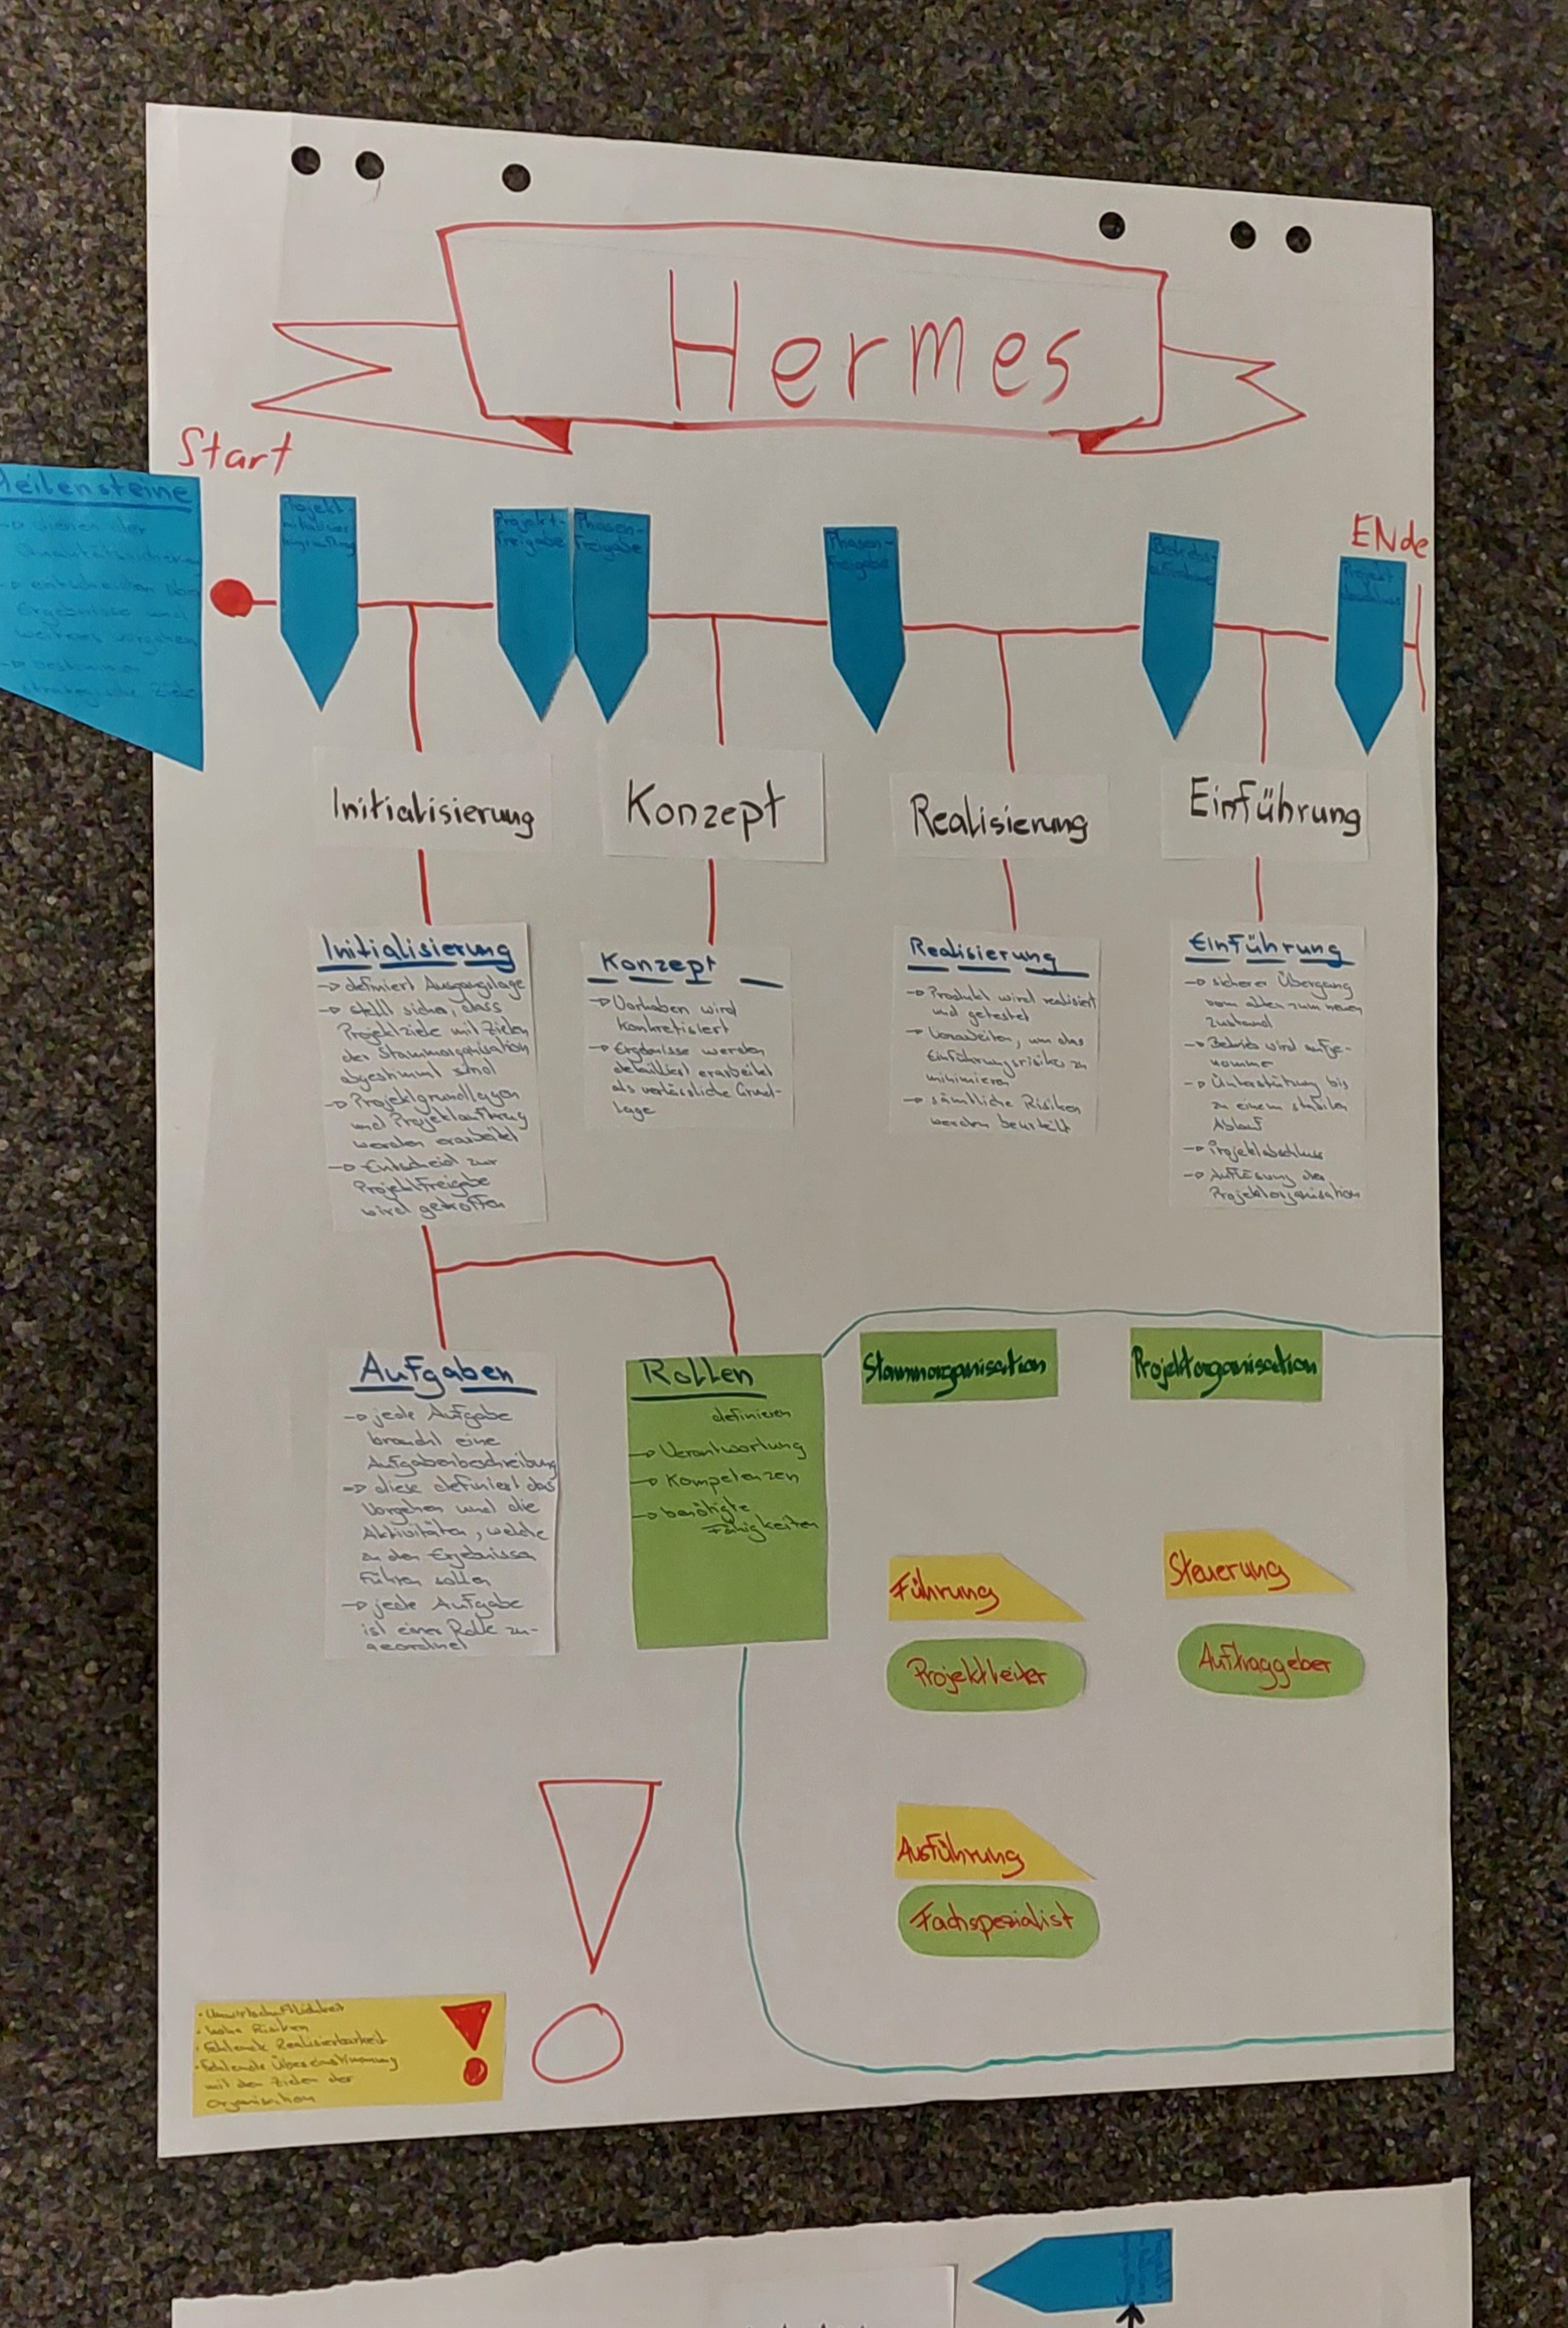 Hermes
Start
ENde
Meilensteine
-> dienen der
Qualitätssicherung
-> entscheiden über
Ergebnisse und
weiteres vorgehen
-> bestimmen
strategische Ziele
Projekt-
initialisierungsauftrag
Projekt-
freigabe
Phasen-
freigabe
Phasen-
freigabe
Betriebs-
aufnahme
Projekt
abschluss
Initialisierung
Konzept
Realisierung
Einführung
Initialisierung
-> definiert Ausgangslage
-> stellt sicher, dass
Projektziele mit Zielen
der Stammorganisation
abgestimmt sind
-> Projektgrundlagen
und Projektauftrag
werden erarbeitet
-> Entscheid zur
Projektfreigabe
wird getroffen
Konzept
-> Vorhaben wird
konkretisiert
-> Ergebnisse werden
detailliert erarbeitet
als verlässliche Grund-
lage
Realisierung
-> Produkt wird realisiert
und getestet
-> Vorarbeiten, um das
Einführungsrisiko zu
minimieren
-> sämtliche Risiken
werden beurteilt
Einführung
-> sicherer Übergang
vom alten zum neuen
Zustand
-> Betrieb wird aufge-
nommen
-> Unterstützung bis
zu einem stabilen
Ablauf
-> Projektabschluss
-> Auflösung der
Projektorganisation
Aufgaben
-> jede Aufgabe
braucht eine
Aufgabenbeschreibung
-> diese definiert das
Vorgehen und die
Aktivitäten, welche
zu den Ergebnissen
führen sollen
-> jede Aufgabe
ist einer Rolle zu-
geordnet
Rollen
definieren
-> Verantwortung
-> Kompetenzen
-> benötigte
Fähigkeiten
Stammorganisation
Projektorganisation
Führung
Steuerung
Projektleiter
Auftraggeber
Ausführung
Fachspezialist
• Unwirtschaftlichkeit
• hohe Risiken
• Fehlende Realisierbarkeit
• Fehlende Übereinstimmung
mit den Zielen der
Organisation